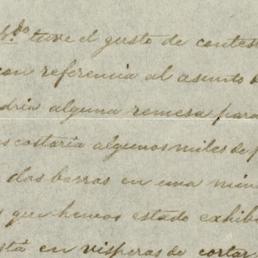 tuve el gusto de contes
con referencia al asunto
alguna remesa para
costaria algunos miles de
das barras en una min
que hemos estado exhib
está en visperas de cortar